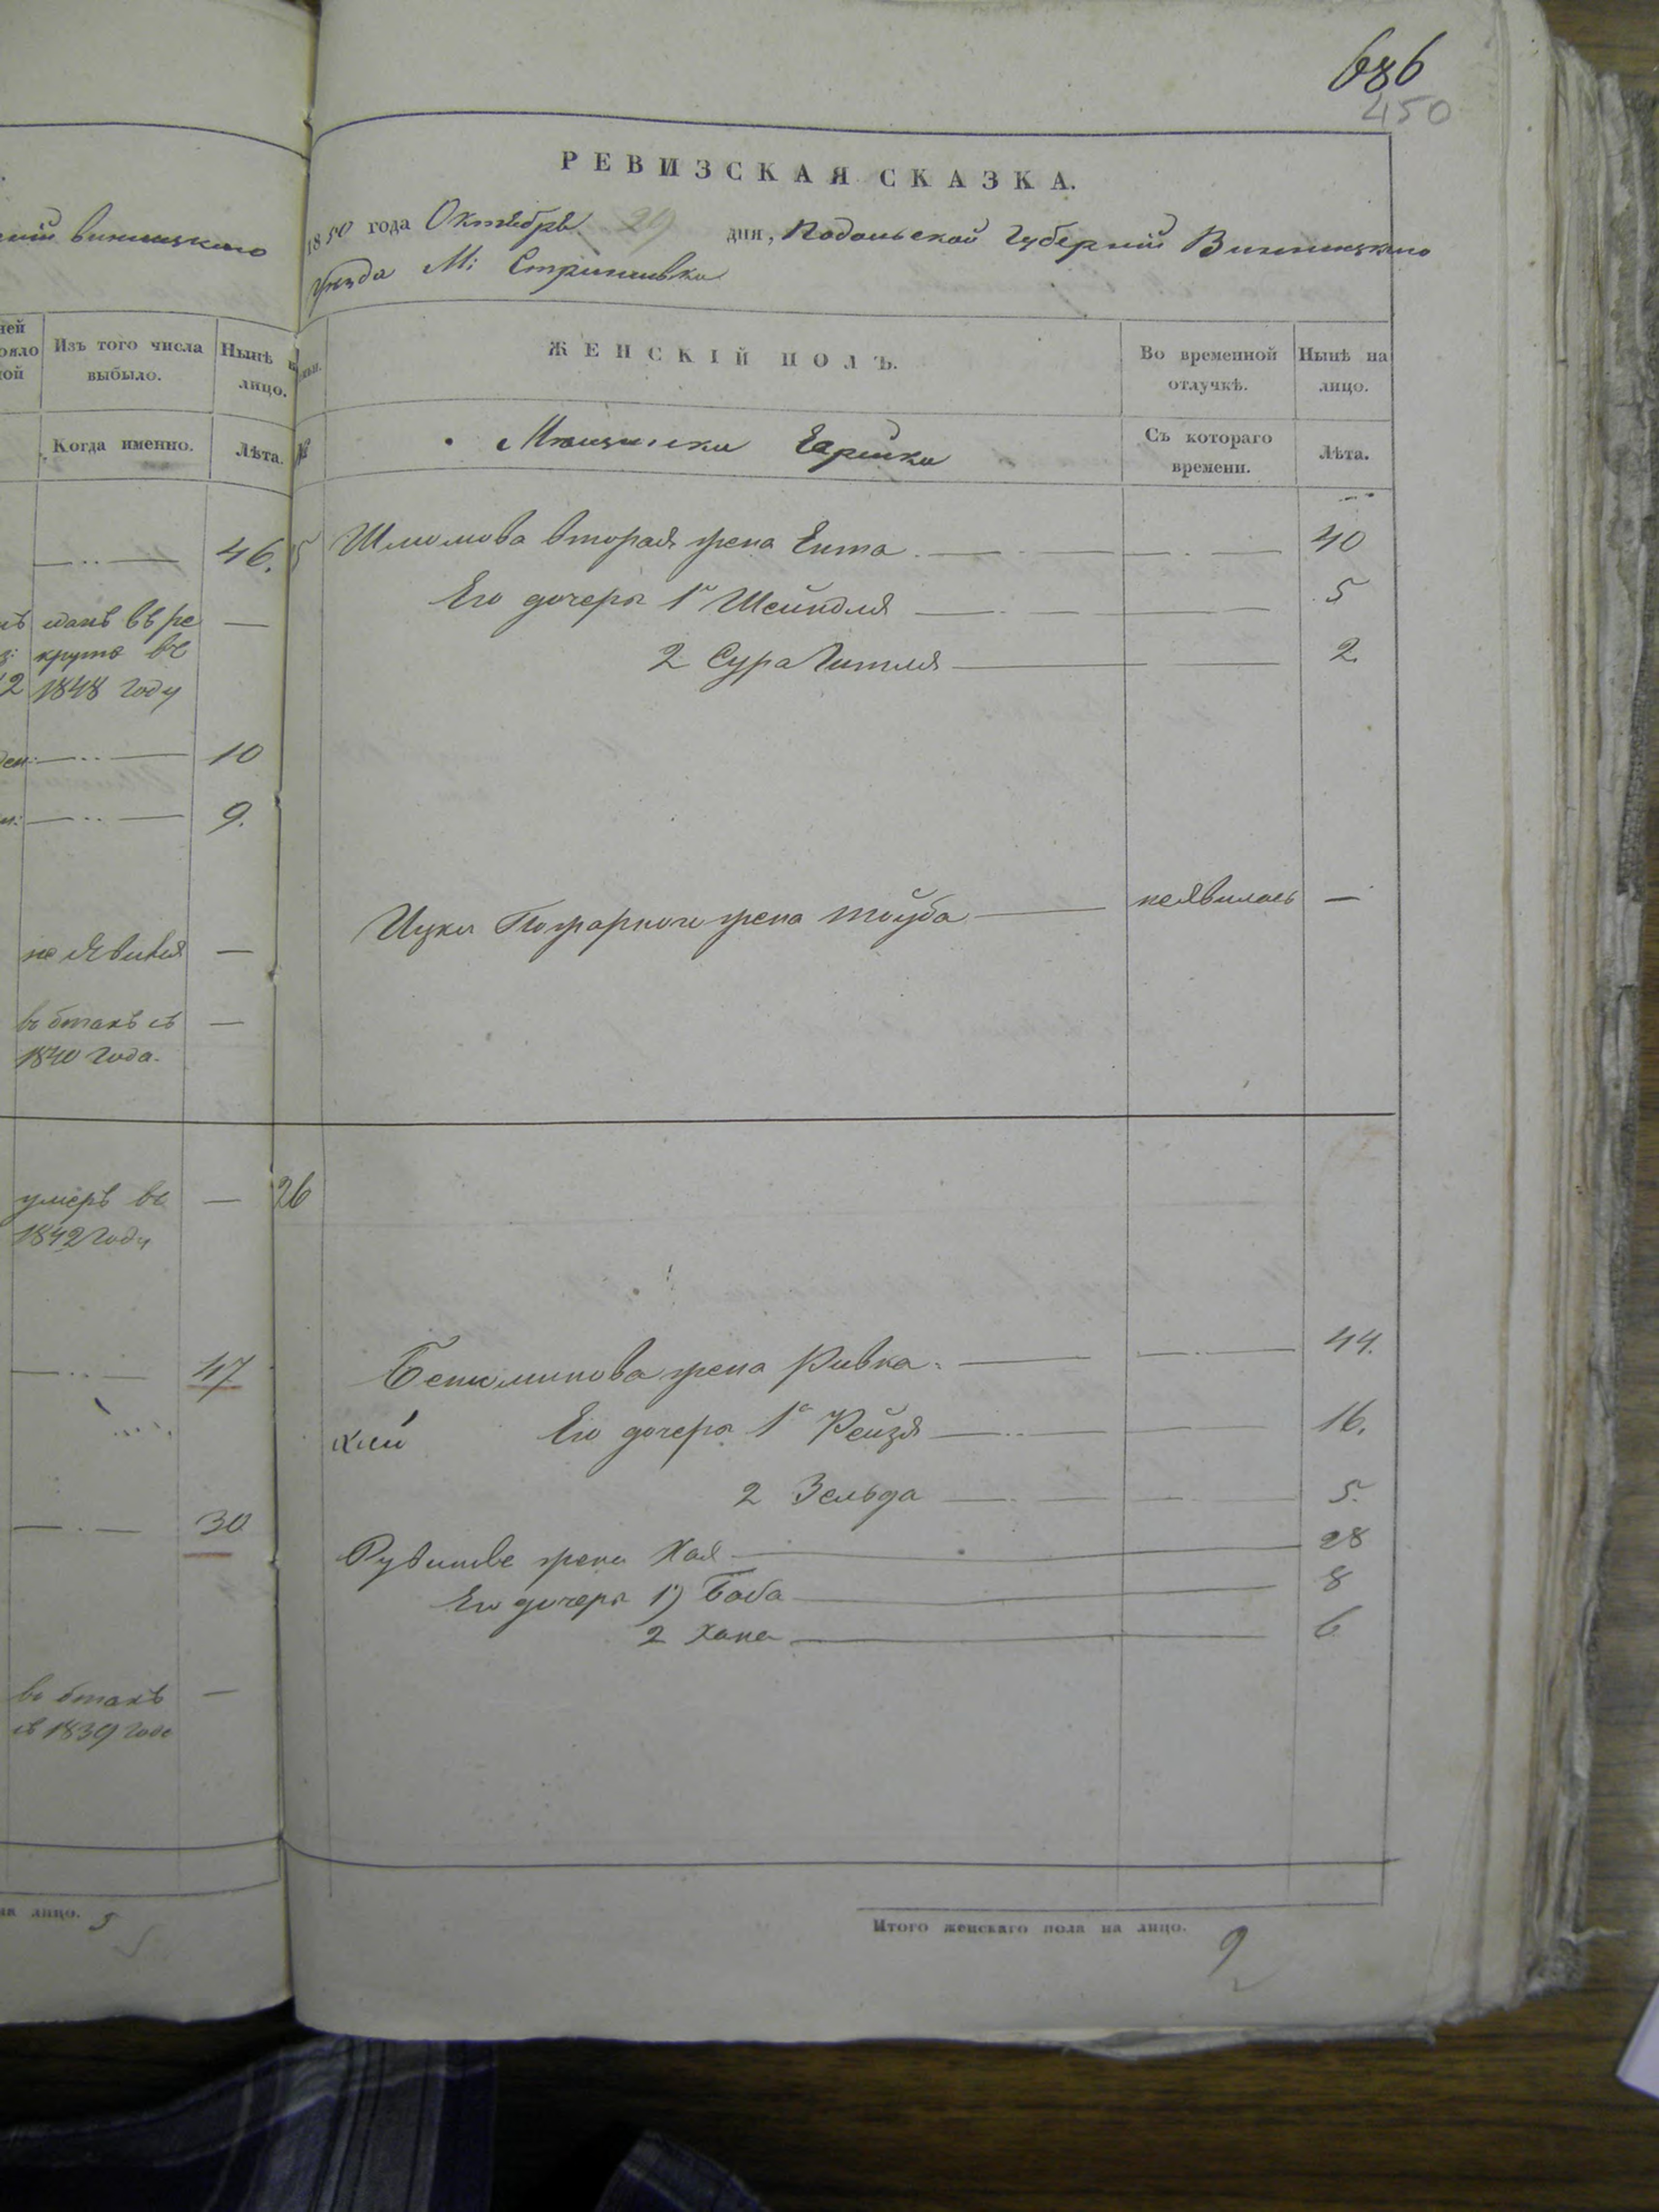 686
450
РЕВИЗСКАЯ СКАЗКА.
1850 года Октября 29 дня, Подольской Губернии Винницкаго
уезда М: Стрижавки
винницкаго
Изъ того числа
выбыло.
Нынѣ на
лицо.
Когда именно.
Лѣта.
46.
данъ въ ре
круты въ
1848 году
10
9.
не явился
въ бѣгахъ съ
1840 года.
умеръ въ
1842 году
47
30
въ бѣгахъ
съ 1839 года
на лицо. 5
ЖЕНСКІЙ ПОЛЪ.
Во временной
отлучкѣ.
Нынѣ на
лицо.
№
Мѣщански Еврейки
Съ котораго
времени.
Лѣта.
Шлиомова вторая жена Ента 40
Его дочери 1я Шейндля 5
2 Сура Гитля 2
Ицки жена Тойба неявилась —
26
Бениминова жена Ривка 44.
Его дочери 1я Рейзя 16.
2 Зельда 5.
жена Хая 28
Его дочери 1) Баба 8
2 Хана 6
Итого женскаго пола на лицо. 9